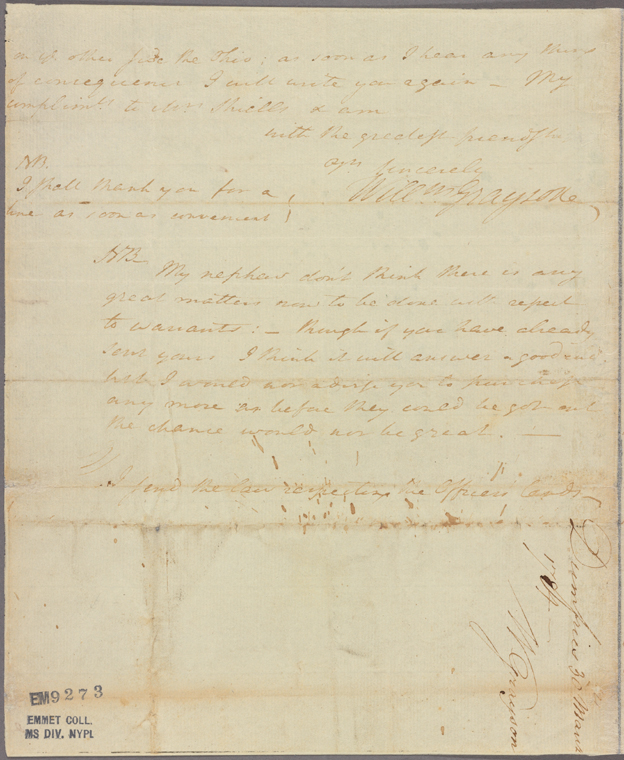 other side the This: as soon as I hear any thing
of consequence I will write you again – My
complimts. to Mrs. Shiells & am
with the greatest friendship
yrs sincerely
Willm Grayson
NB.
I shall thank you for a
line as soon as convenient
NB
My nephew don't think there is any
great matters now to be done with respect
to warrants: – though if you have already
sent yours I think it will answer a good end.
but I would not advise you to purchase
any more as before they could be got out
the chance would not be great. –
I send the law respecting the Officers lands
Dumfries 30 March
1784
W Grayson
EM9273
EMMET COLL.
MS DIV. NYPL